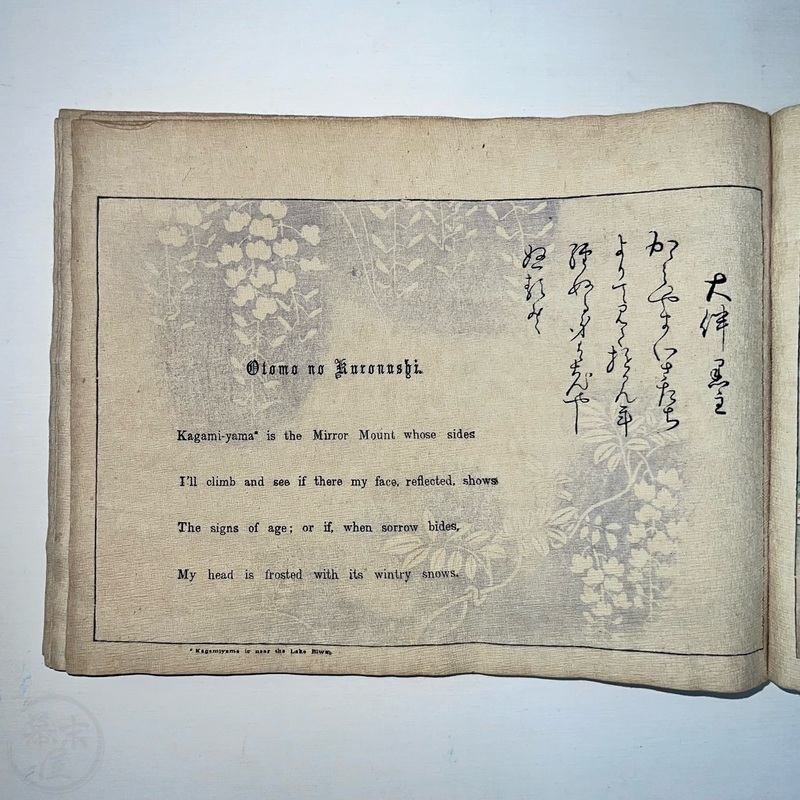 大伴 黒主
かゝみやまいさたち
よりて見てゆかん年
経ぬる身
Otomo no Kuronushi.
Kagami-yama* is the Mirror Mount whose sides
I'll climb and see if there my face, reflected, shows
The signs of age; or if, when sorrow bides,
My head is frosted with its wintry snows.
* Kagamiyama is near the Lake Biwa.
幕末
屋